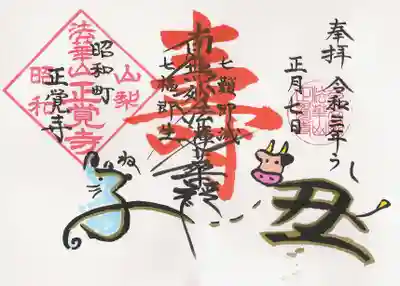 奉拝 令和三年うし
正月七日
壽
七難即滅
南無妙法蓮華経
七福即生
山梨
法華山
正覚寺
昭和
昭和町
正覚寺
ね
丑